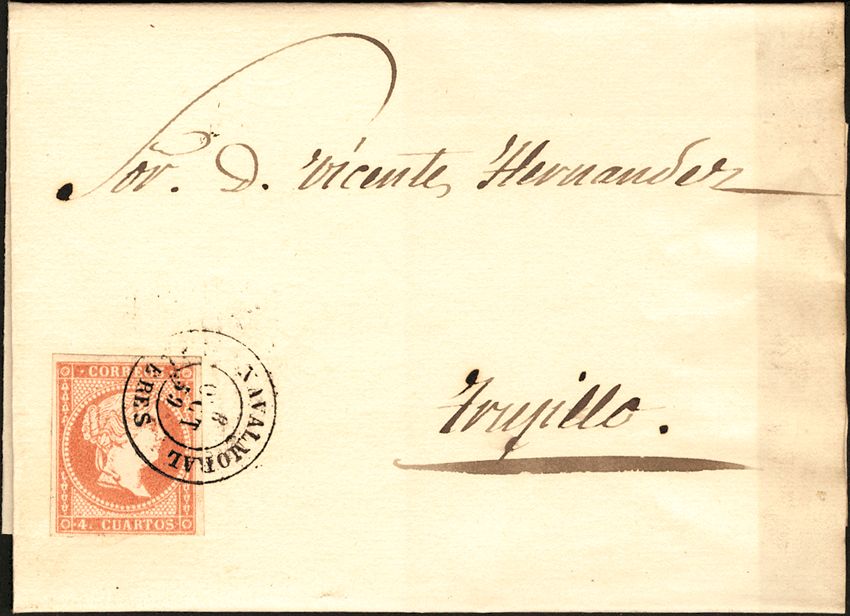 Sor. D. Vicente Hernandez
Trujillo.
CORREOS
4. CUARTOS.
NAVALMORAL
8
OCT
59
ERES